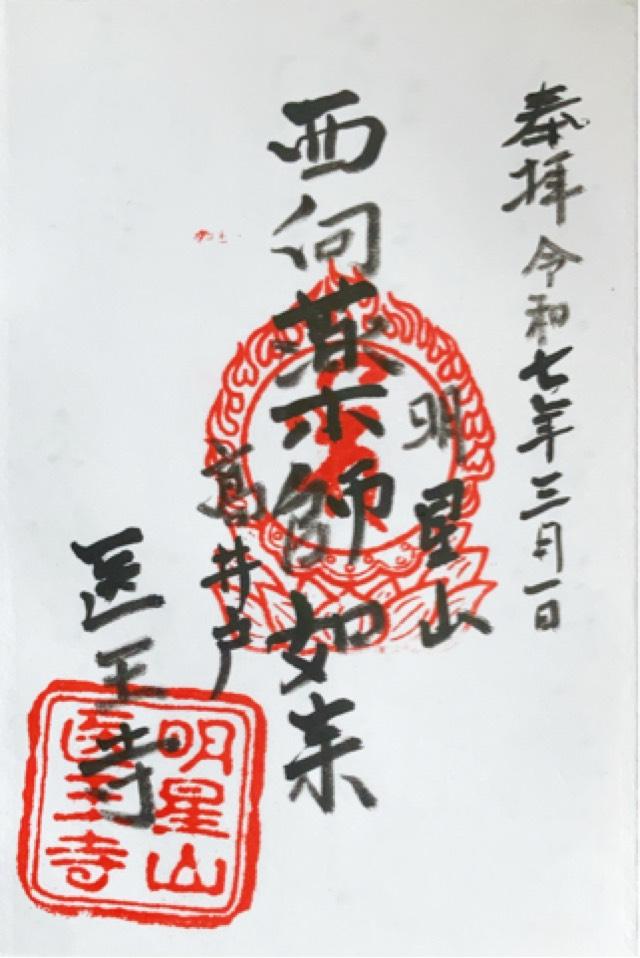 奉拝 令和七年三月一日
明星山
西向薬師如来
高井戸
医王寺
明星山
医王寺